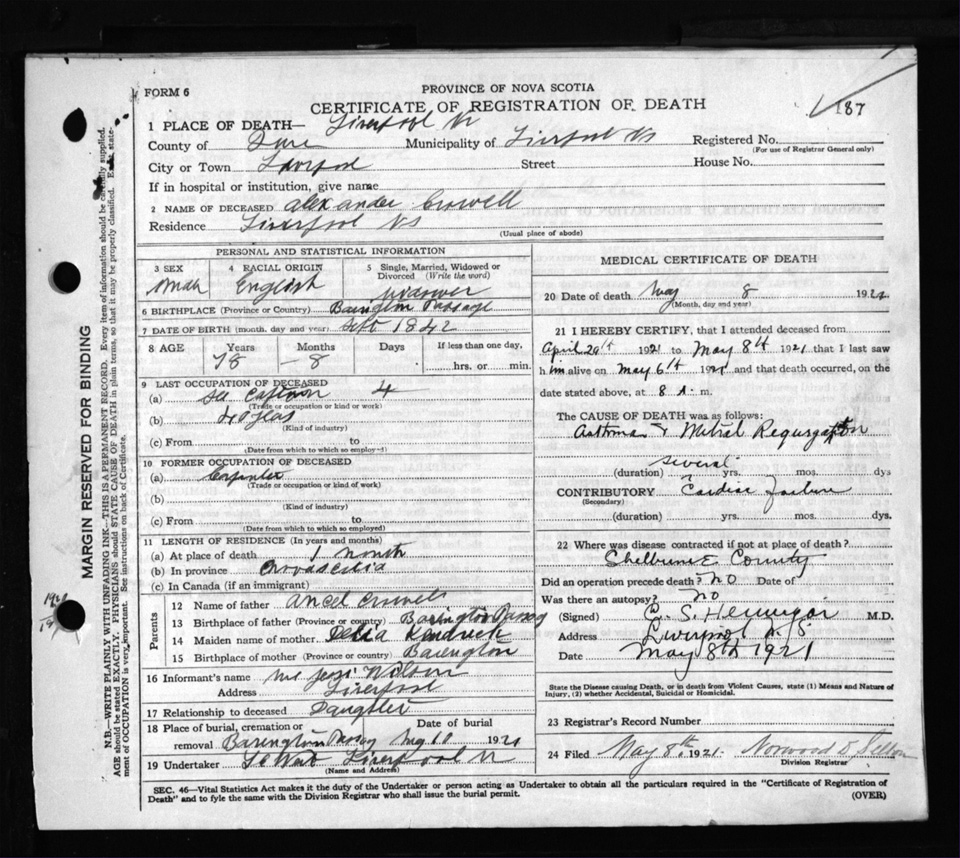 FORM 6
PROVINCE OF NOVA SCOTIA
CERTIFICATE OF REGISTRATION OF DEATH
187
1 PLACE OF DEATH— Liverpool
County of Municipality of Liverpool NS Registered No.
(For use of Registrar General only)
City or Town Street House No.
If in hospital or institution, give name
2 NAME OF DECEASED Alexander Crowell
Residence Liverpool NS
(Usual place of abode)
PERSONAL AND STATISTICAL INFORMATION
3 SEX 4 RACIAL ORIGIN 5 Single, Married, Widowed or Divorced (Write the word)
English
6 BIRTHPLACE (Province or Country) Barington Passage
7 DATE OF BIRTH (month, day and year) Sept 1842
8 AGE Years Months Days If less than one day,
78 8 hrs. or min.
9 LAST OCCUPATION OF DECEASED 4
(a)
(Trade or occupation or kind or work)
(b) 40
(Kind of industry)
(c) From to
(Date from which to which so employed)
10 FORMER OCCUPATION OF DECEASED
(a) Carpinter
(Trade or occupation or kind of work)
(b)
(Kind of industry)
(c) From to
(Date from which to which so employed)
11 LENGTH OF RESIDENCE (In years and months)
(a) At place of death 1 month
(b) In province
(c) In Canada (if an immigrant)
Parents
12 Name of father
13 Birthplace of father (Province or country)
14 Maiden name of mother Kendrick
15 Birthplace of mother (Province or country) Barington
16 Informant's name Wilson
Address Liverpool
17 Relationship to deceased Daughter
18 Place of burial, cremation or removal Date of burial
Barington May 10 1921
19 Undertaker Liverpool
(Name and Address)
MEDICAL CERTIFICATE OF DEATH
20 Date of death May 8 1921
(Month, day and year)
21 I HEREBY CERTIFY, that I attended deceased from
April 29th 1921 to May 8th 1921 that I last saw
h im alive on May 6th 1921 and that death occurred, on the
date stated above, at 8 A. m.
The CAUSE OF DEATH was as follows:
Asthma & Mitral Regurgitation
several
(duration) yrs. mos. dys
CONTRIBUTORY Cardiac failure
(Secondary)
(duration) yrs. mos. dys.
22 Where was disease contracted if not at place of death?
Shelburne County
Did an operation precede death? no Date of
Was there an autopsy? no
(Signed) M.D.
Address Liverpool N.S.
Date May 8th 1921
State the Disease causing Death, or in death from Violent Causes, state (1) Means and Nature of Injury, (2) whether Accidental, Suicidal or Homicidal.
23 Registrar's Record Number
24 Filed May 8th 1921. Norwood
Division Registrar
SEC. 46—Vital Statistics Act makes it the duty of the Undertaker or person acting as Undertaker to obtain all the particulars required in the "Certificate of Registration of
Death" and to fyle the same with the Division Registrar who shall issue the burial permit.
(OVER)
MARGIN RESERVED FOR BINDING
N.B.—WRITE PLAINLY WITH UNFADING INK—THIS IS A PERMANENT RECORD. Every item of information should be carefully supplied.
AGE should be stated EXACTLY. PHYSICIANS should STATE CAUSE OF DEATH in plain terms, so that it may be properly classified. Exact statement of OCCUPATION is very important. See instructions on back of Certificate.